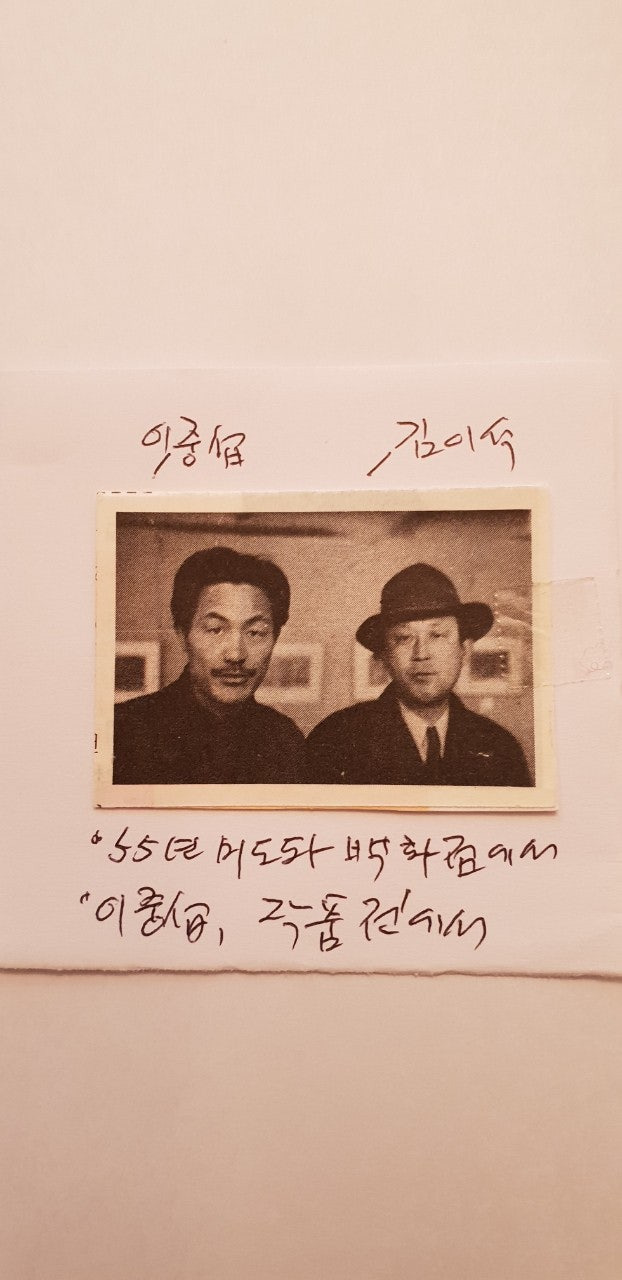 이중섭 김이석
'55년 미도파 백화점에서
"이중섭, 작품전'에서